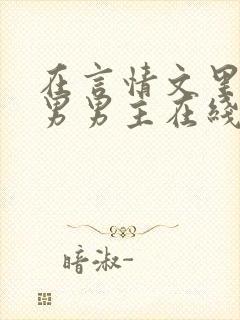 在言情文里
男男主在线
暗淑-